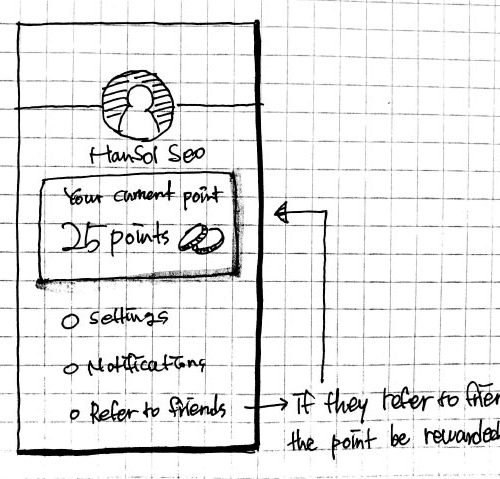 HanSol Seo
Your current point
25 points
settings
Notifications
Refer to friends
if they refer to frien
the point be rewarded